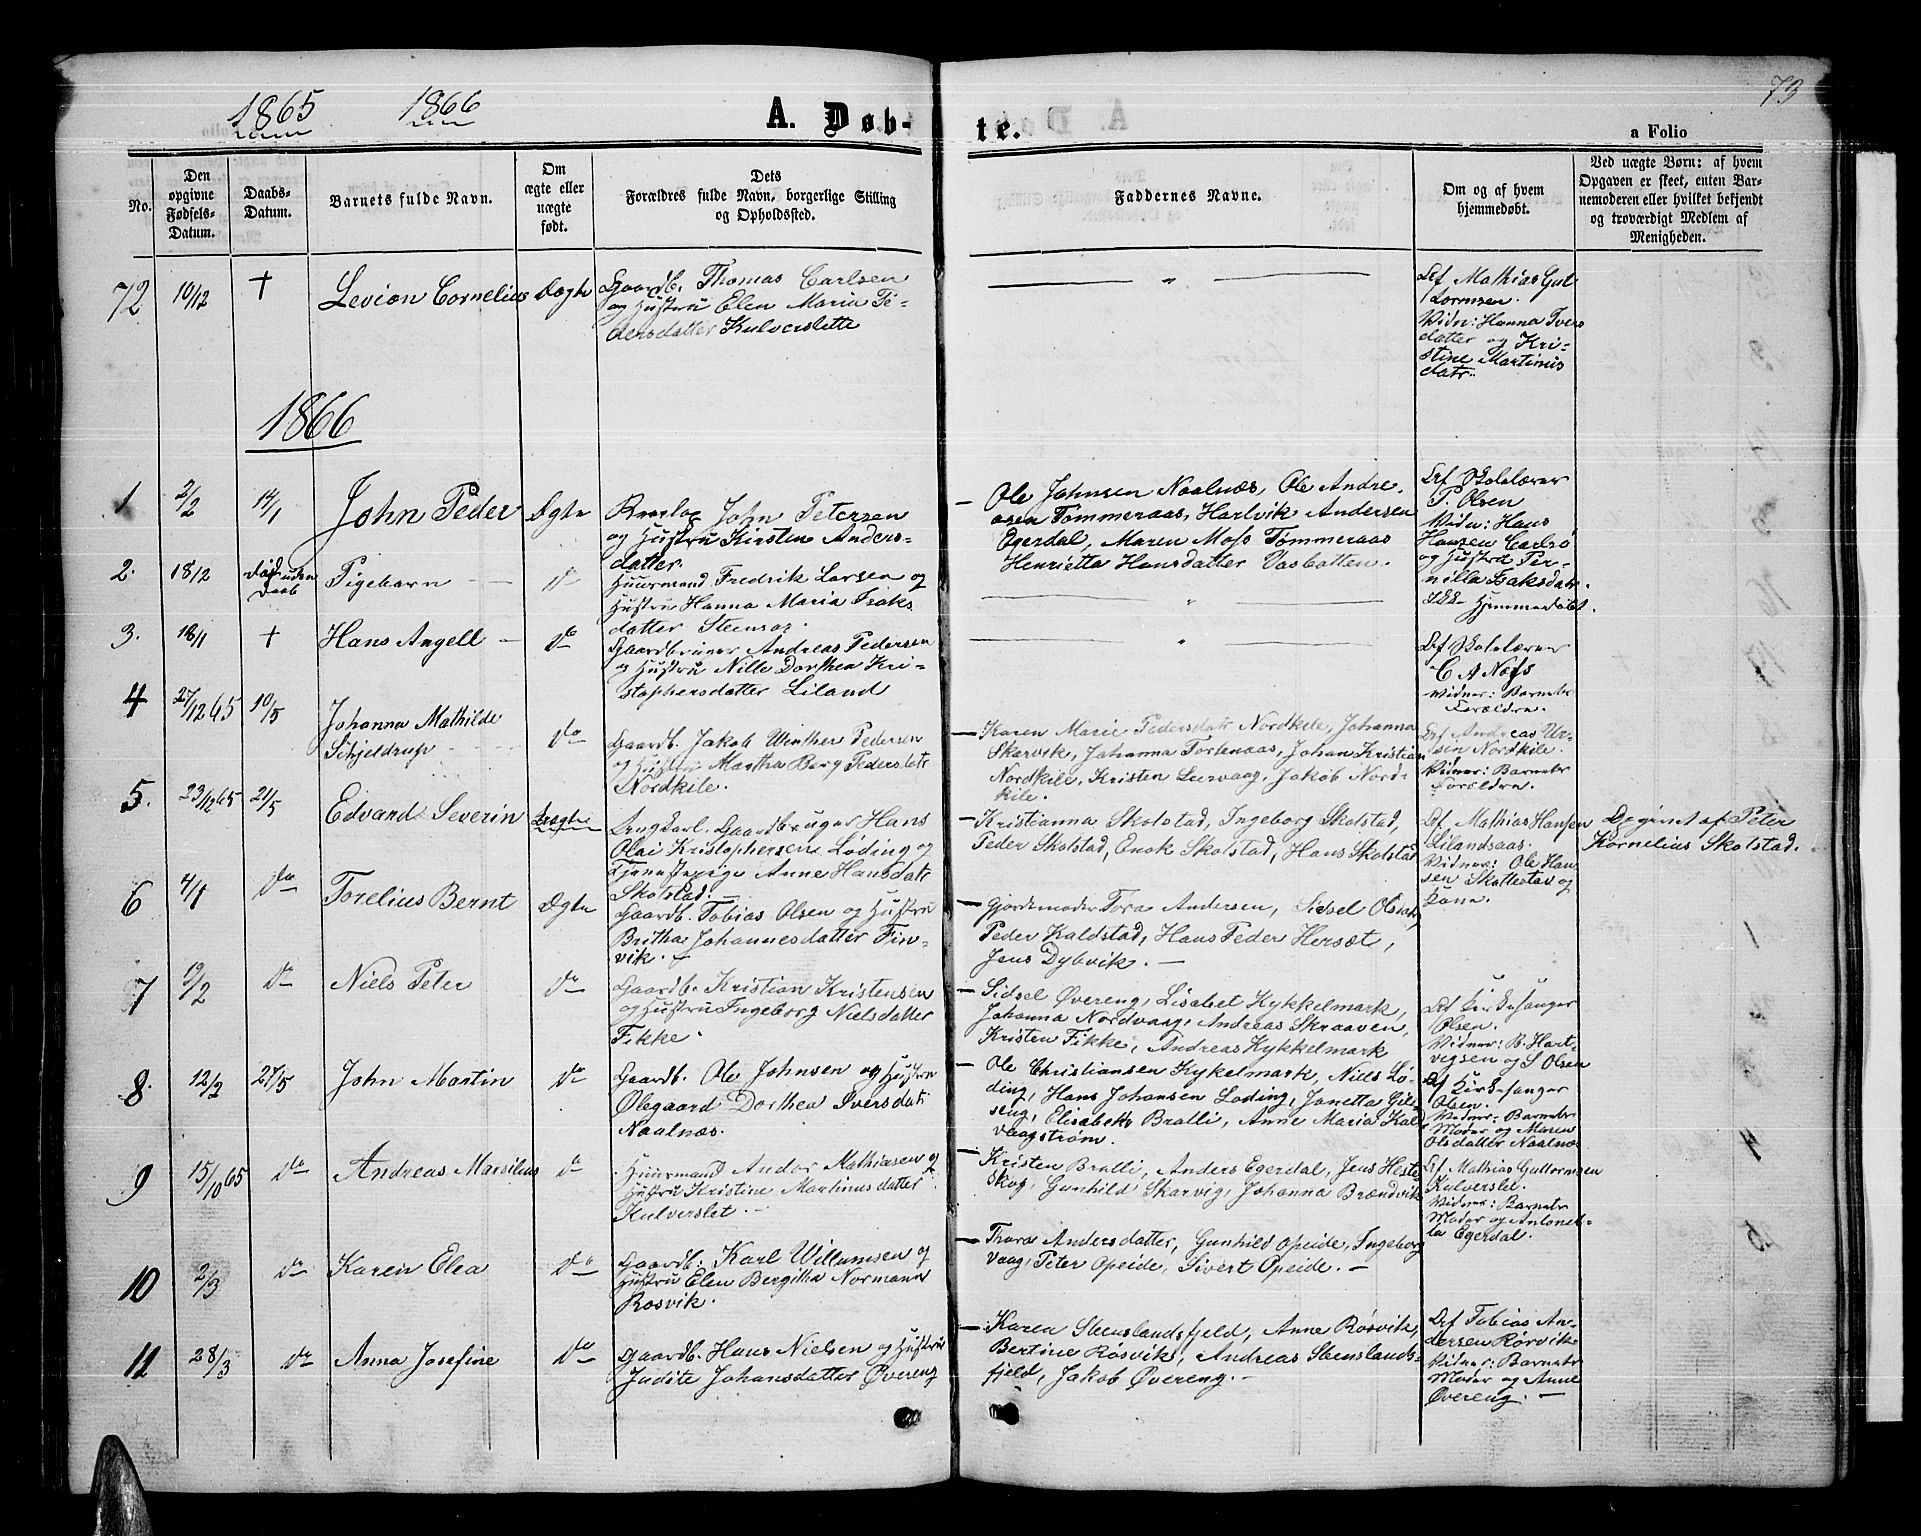 73
1865 1866 A. Døb- te. a Folio
No.
Den opgivne Fødsels-Datum.
Daabs-Datum.
Barnets fulde Navn.
Om ægte eller uægte født.
Dets Forældres fulde Navn, borgerlige Stilling og Opholdssted.
Faddernes Navne.
Om og af hvem hjemmedøbt.
Ved uægte Børn: af hvem Opgaven er skeet, enten Barnemoderen eller hvilket bekjendt og troværdigt Medlem af Menigheden.
72 10/12 † Levion Cornelius Ægte
Gaardb. Thomas Carlsen
og Hustru Elen Maria Pe-
dersdatter Kulverslette
— " —
Af Mathias Gut
tormsen.
Vidn: Hanna Ivers
datter og Kri-
stine Martinus
datr.
1866
1 2/2 14/1 John Peder Ægte
John Petersen
og Hustru Kirsten Anders-
datter.
— Ole Johnsen Naalnæs, Ole Andre.
asen Tømmeraas, Hartvik Andersen
Egerdal, Maren Moss Tømmeraas
Henrietta Hansdatter Vasbotten.
Af Skolelærer
P. Olsen
Vidn: Hans
Hansen Carlsø
og Hustru Per-
nilla Isaksdatr.
2. 18/2 død uden Daab Pigebarn — do
Huusmand Fredrik Larsen og
Hustru Hanna Maria Isaks
datter Steensør.
— " —
Ikke Hjemmedøbt.
3. 18/1 † Hans Angell — do
Gaardbruger Andreas Pedersen
og Hustru Nille Dorthea Kri-
stophersdatter Liland
— " —
Af Skolelærer
C A Næss
Vidner: Barnets
Forældre.
4 27/12 65 10/5 Johanna Mathilde
Schjeldrup do
Gaardb. Jakob Winther Pedersen
og Hustru Martha Berg Pedersdatr
Nordkile.
— Karen Marie Pedersdatr Nordkile, Johanna
Skarvik, Johanna Torbenaas, Johan Kristian
Nordkile, Kristen Leervaag, Jakob Nord-
kile.
Af Andreas
Nordkile.
Vidner: Barnets
Forældre.
5. 23/12 65 21/5 Edvard Severin Uægte
Ungkarl. Gaardbruger Hans
Olai Kristophersen Løding og
Tjenestepige Anne Hansdatr
Skolstad.
— Kristianna Skolstad, Ingeborg Skolstad,
Peder Skolstad, Enok Skolstad, Hans Skolstad
Af Mathias Hansen
Lilandsaas.
Vidner: Ole Han-
sen Skottestad og
Kone.
Opgivet af Peter
Kornelius Skolstad.
6 4/1 do Torelius Bernt Ægte
Gaardb. Tobias Olsen og Hustru
Britha Johannesdatter Fin-
vik. —
— Gjordemoder Tora Andersen, Sidsel Olsdatr,
Peder Kaldstad, Hans Peder Hersæt,
Jens Dybvik. —
7 19/2 do Niels Peter do
Gaardb. Kristian Kristensen
og Hustru Ingeborg Nielsdatter
Fikke.
— Sidsel Øvereng, Lisabet Kykkelmark,
Johanna Nordvaag, Andreas Skraaven,
Kristen Fikke, Andreas Kykkelmark
Af Kirkesanger
Olsen.
Vidner: B. Hart-
vigsen og S Olsen
8. 12/2 27/5 John Martin do
Gaardb. Ole Johnsen og Hustru
Olegaard Dorthea Iversdatr
Naalnæs.
— Ole Christiansen Kykelmark, Niels Lø-
ding, Hans Johansen Løding, Janetta Gil-
seng, Elisabeth Bralli, Anne Maria Kald
vaagstrøm.
Af Kirkesanger
Olsen.
Vidner: Barnets
Moder og Maren
Olsdatter Naalnæs
9 15/10 65 do Andreas Marsilius do
Huusmand Andor Mathiasen og
Hustru Kristine Martinusdatter
Kulverslet. —
— Kristen Bralli, Anders Egerdal, Jens Heste
skog, Gunhild Skarvig, Johanna Brændvik
Af Mathias Guttormsen
Kulverslet.
Vidner: Barnets
Moder og Antonet-
ta Egerdal.
10 2/3 do Karen Elea do
Gaardb: Karl Willumsen og
Hustru Elen Bergitha Normann
Rosvik.
— Thora Andersdatter, Gunhild Opeide, Ingeborg
Vaag, Peter Opeide, Sivert Opeide. —
11 28/3 do Anna Josefine do
Gaardb. Hans Nielsen og Hustru
Judite Johansdatter Øvereng
— Karen Steenslandsfjeld, Anne Røsvik,
Bertine Røsvik, Andreas Stenslands-
fjeld, Jakob Øvereng. —
Af Tobias An-
dersen Rørvik
Vidner: Barnets
Moder og Anne
Øvereng. —